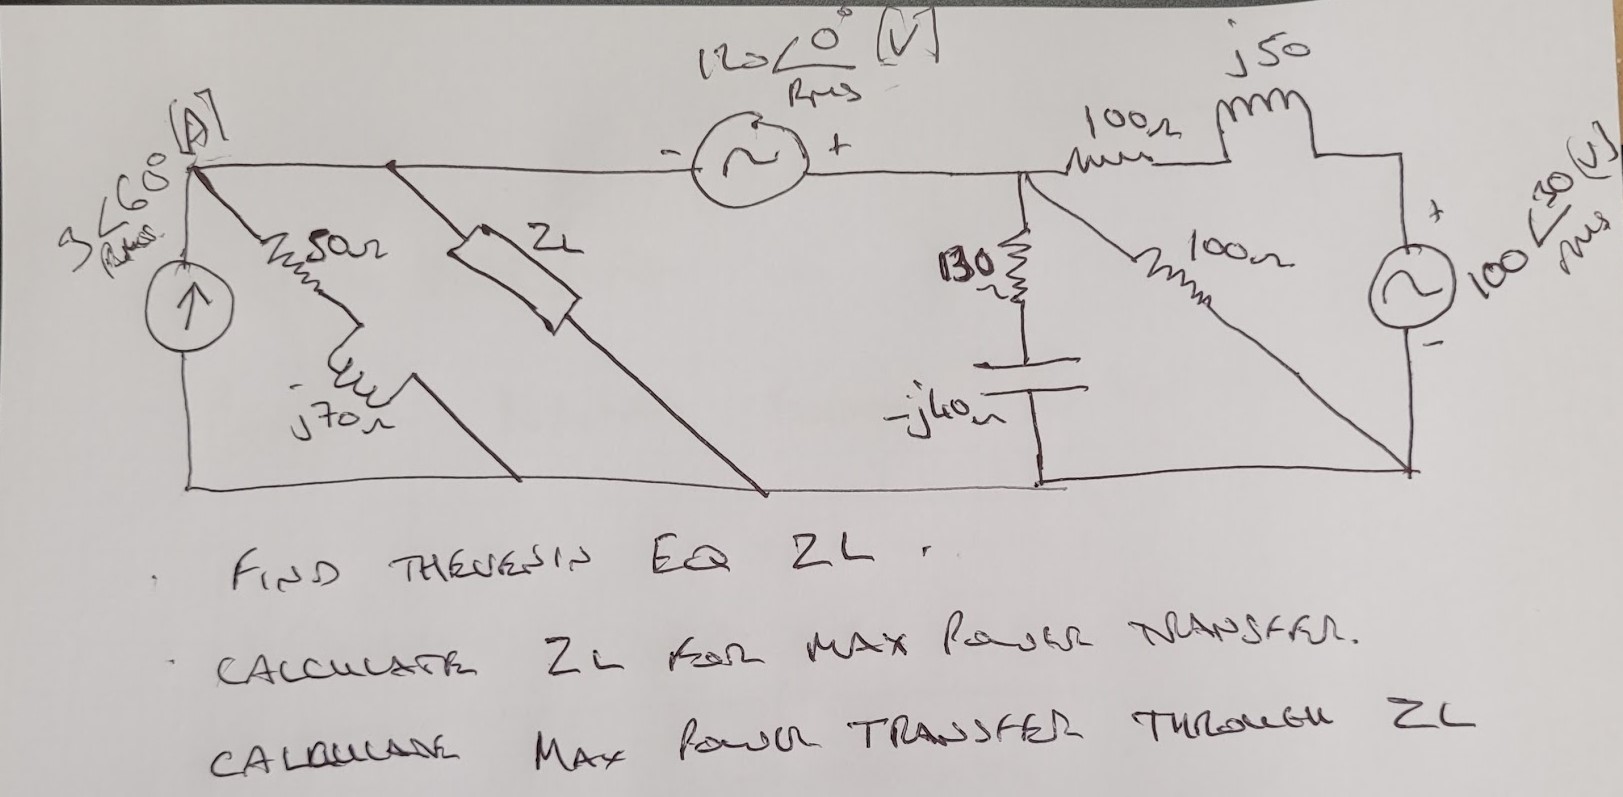 120∠0° [V]
RMS
j50
[A]
3∠60°
RMS
-
+
100Ω
100∠30 (V)
RMS
+
50Ω
ZL
130
Ω
100Ω
-
j70Ω
-j40Ω
FIND THEVENIN EQ ZL.
CALCULATE ZL FOR MAX POWER TRANSFER.
CALCULATE MAX POWER TRANSFER THROUGH ZL